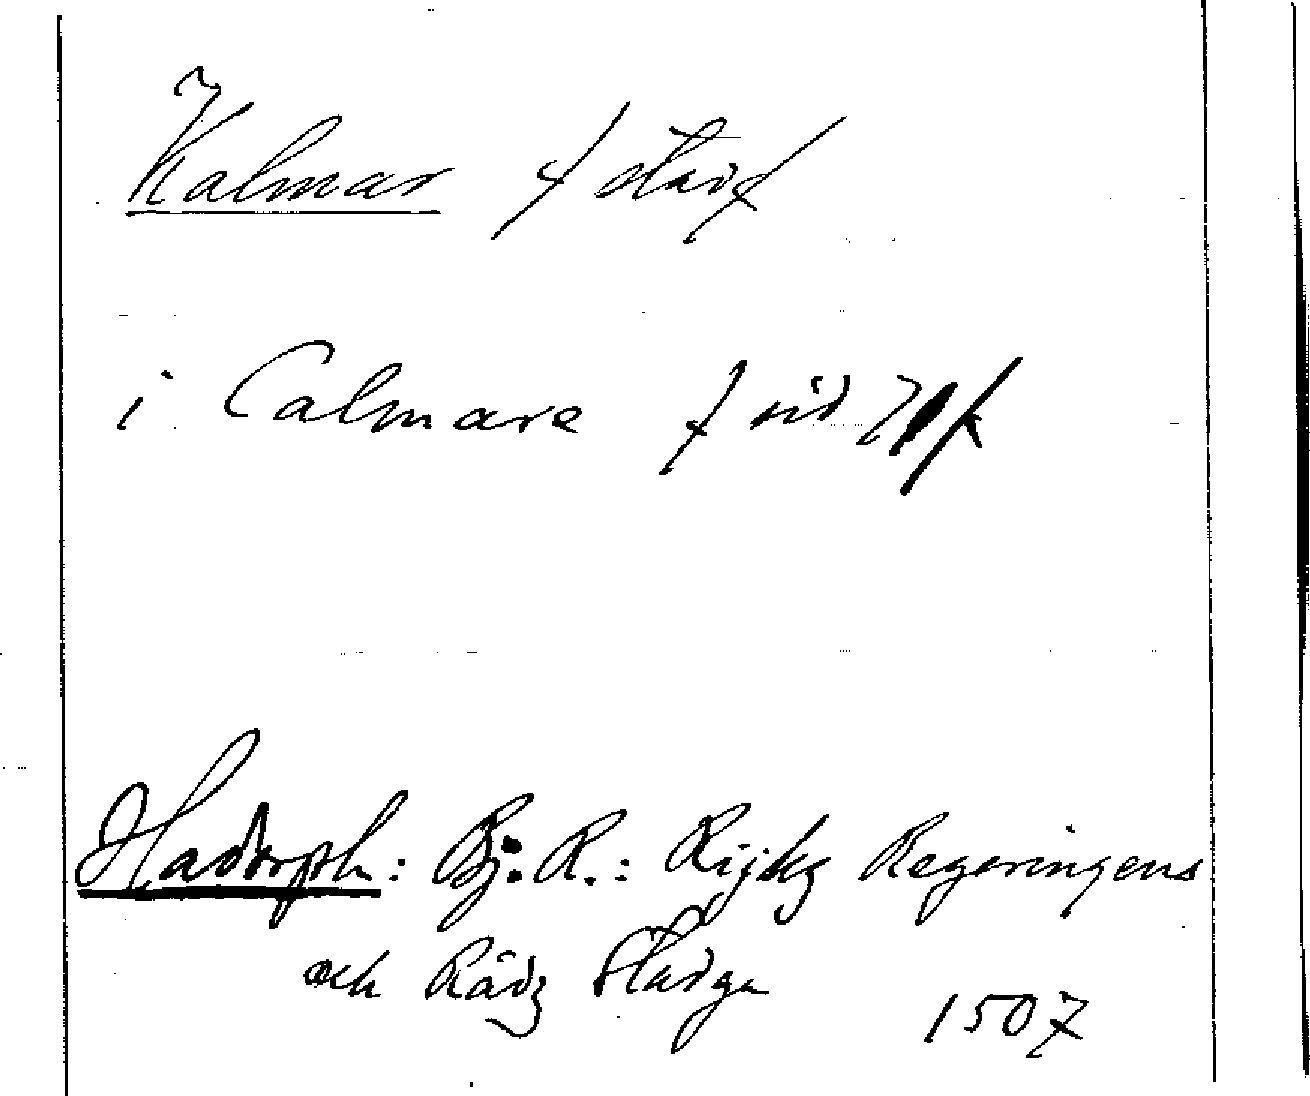 Kalmar /stad/
i Calmare / sid 71/
Hadorph: Bj. R.: Rijkz Regeringens
och Rådz Stadga 1507